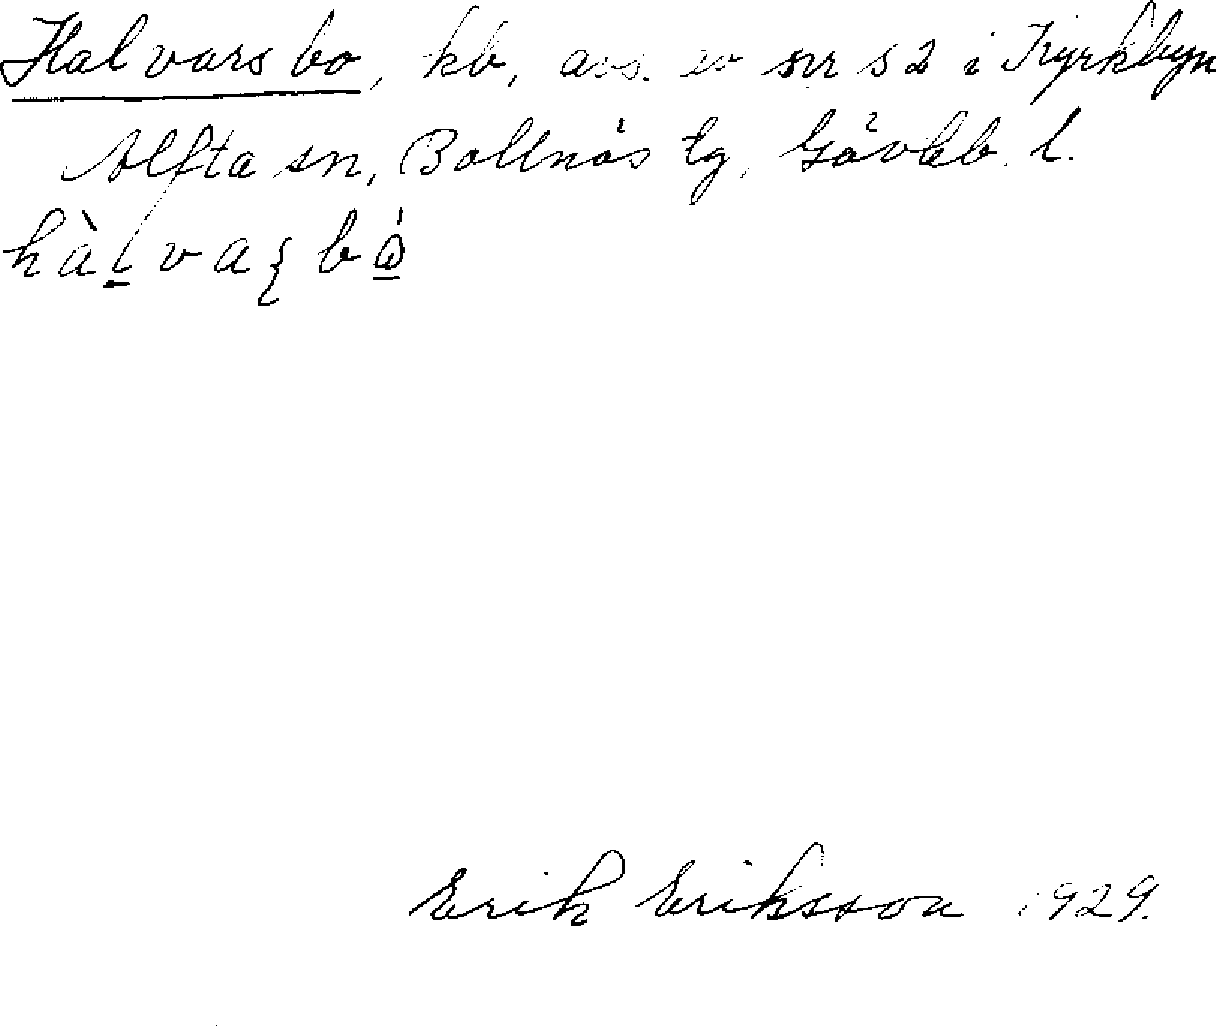 Halvarsbo, kb, avs. av snr s 2 i Kyrkbyn
Alfta sn, Bollnäs tg, Gävleb. l.
Erik Eriksson 1929.